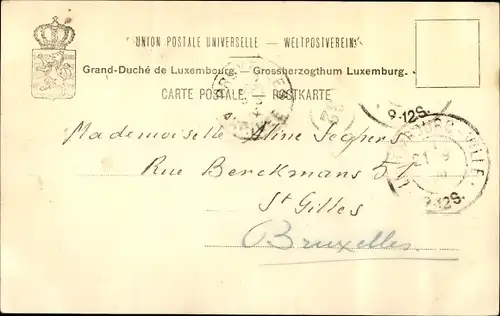 UNION POSTALE UNIVERSELLE — WELTPOSTVEREIN
Grand-Duché de Luxembourg. — Grossherzogthum Luxemburg.
CARTE POSTALE — POSTKARTE
9-12S.
21 9
9-12S.
Mademoiselle Aline Segers
Rue Berckmans 51
St Gilles
Bruxelles